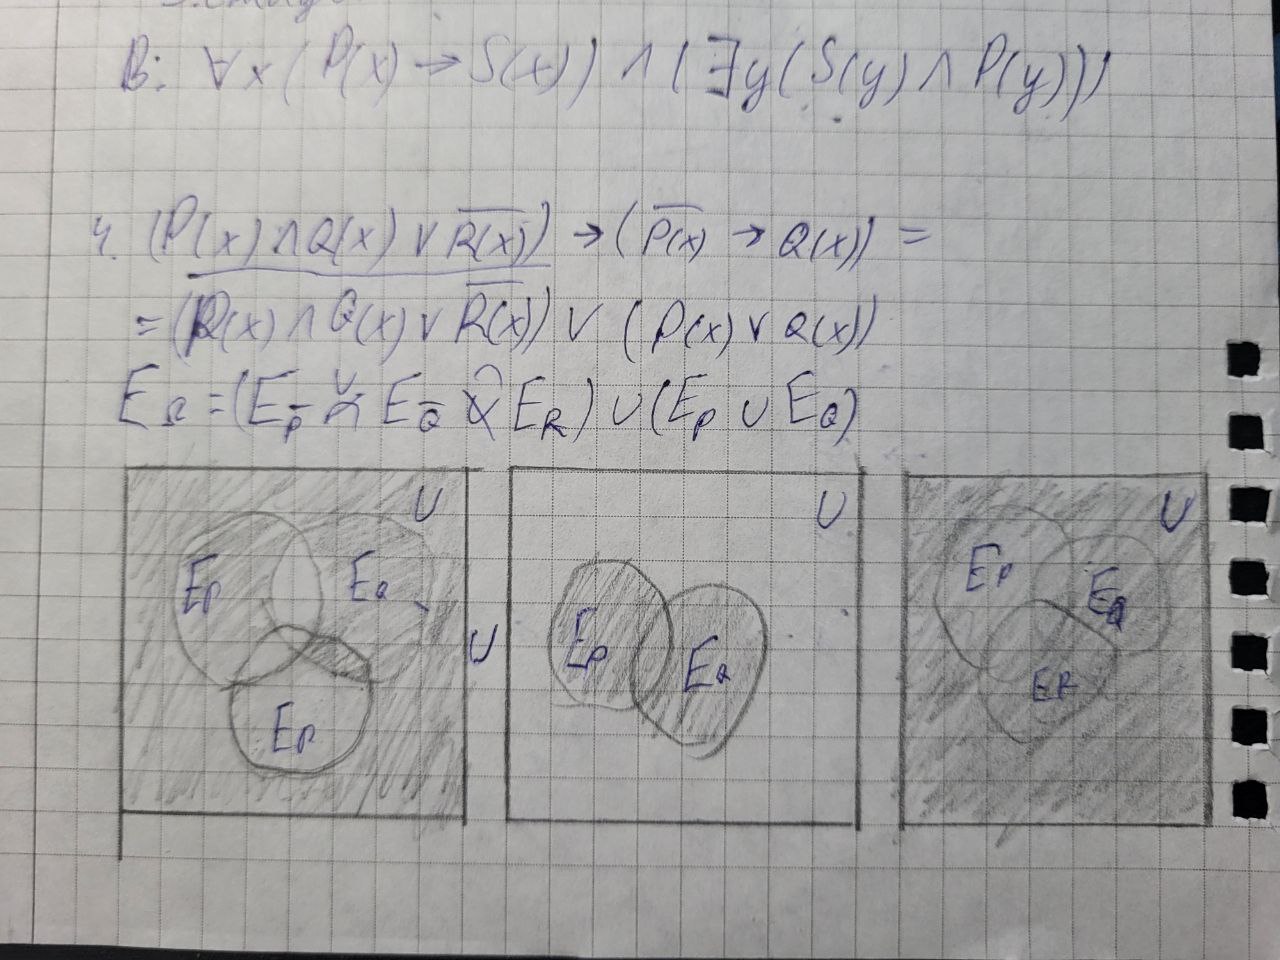 B: ∀x(P(x)→S(x))∧(∃y(S(y)∧P(y)))
4. (P(x)∧Q(x)∨R̅(̅x̅)̅)→(P̅(̅x̅)̅→Q(x))=
=(P(x)∧Q(x)∨R̅(̅x̅)̅)∨(P(x)∨Q(x))
E =(E_P̅ ∪ E_Q̅ ∩ E_R)∪(E_P∪E_Q)
U U U
E_P E_Q E_P E_Q E_P E_Q
U
E_P E_R